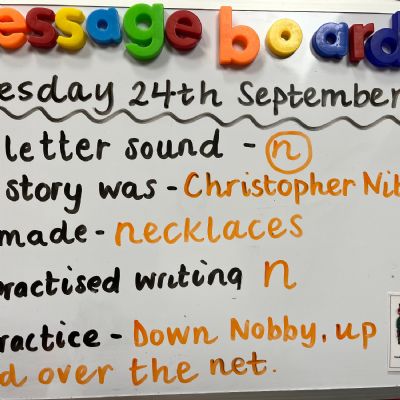 essage board
esday 24th September
letter sound - n
story was - Christopher Nib
made - necklaces
ractised writing n
ractice - Down Nobby, up
d over the net.